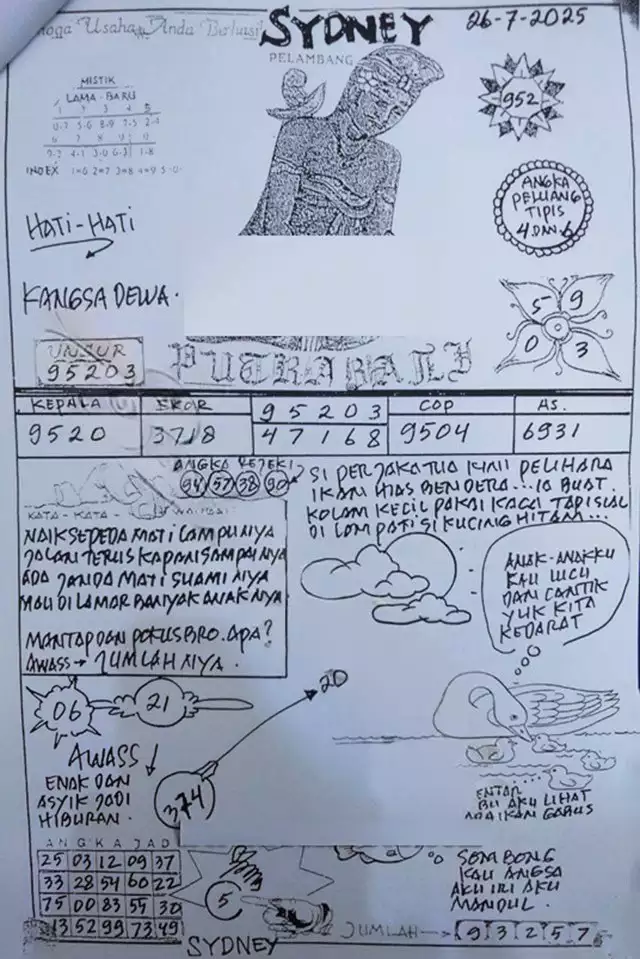 Usaha Anda Berhasil
SYDNEY
26-7-2025
PELAMBANG
MISTIK
LAMA - BARU
1 2 3 4 5
0-7 5-6 8-9 2-5 2-4
6 7 8 9 0
9-2 4-1 3-0 6-3 1-8
INDEX 1=6 2=7 3=8 4=9 5-0
952
ANGKA
PELUANG
TIPIS
4 DAN 6
HATI-HATI
KANGSA DEWA.
5 9
0 3
UNSUR
95203
PUTRA BALI
KEPALA EKOR 95203 COP AS.
9520 3718 47168 9504 6931
ANGKA REJEKI
94 57 38 90
KATA - KATA
SI PERJAKA TUA KINI PELIHARA
IKAN HIAS BENDERA... IA BUAT
KOLAM KECIL PAKAI KACA TAPI SIAL
DI LOMPATI SI KUCING HITAM...
NAIK SEPEDA MATI LAMPUNYA
JALAN TERUS KAPAN SAMPAINYA
ADA JANDA MATI SUAMINYA
MAU DI LAMAR BANYAK ANAKNYA
MANTAP DAN POKUS BRO. APA?
AWASS → JUMLAHNYA.
ANAK-ANAKKU
KAU LUCU
DAN CANTIK
YUK KITA
KEDARAT
06
21
20
AWASS
374
ENAK DAN
ASYIK JADI
HIBURAN.
ENTAR
BU AKU LIHAT
ADA IKAN GABUS
ANGKA JAD
25 03 12 09 37
33 28 54 60 22
75 00 83 55 30
13 52 99 73 49
5
SOMBONG
KAU ANGSA
AKU IRI AKU
MANDUL.
SYDNEY
JUMLAH → 9 3 2 5 7